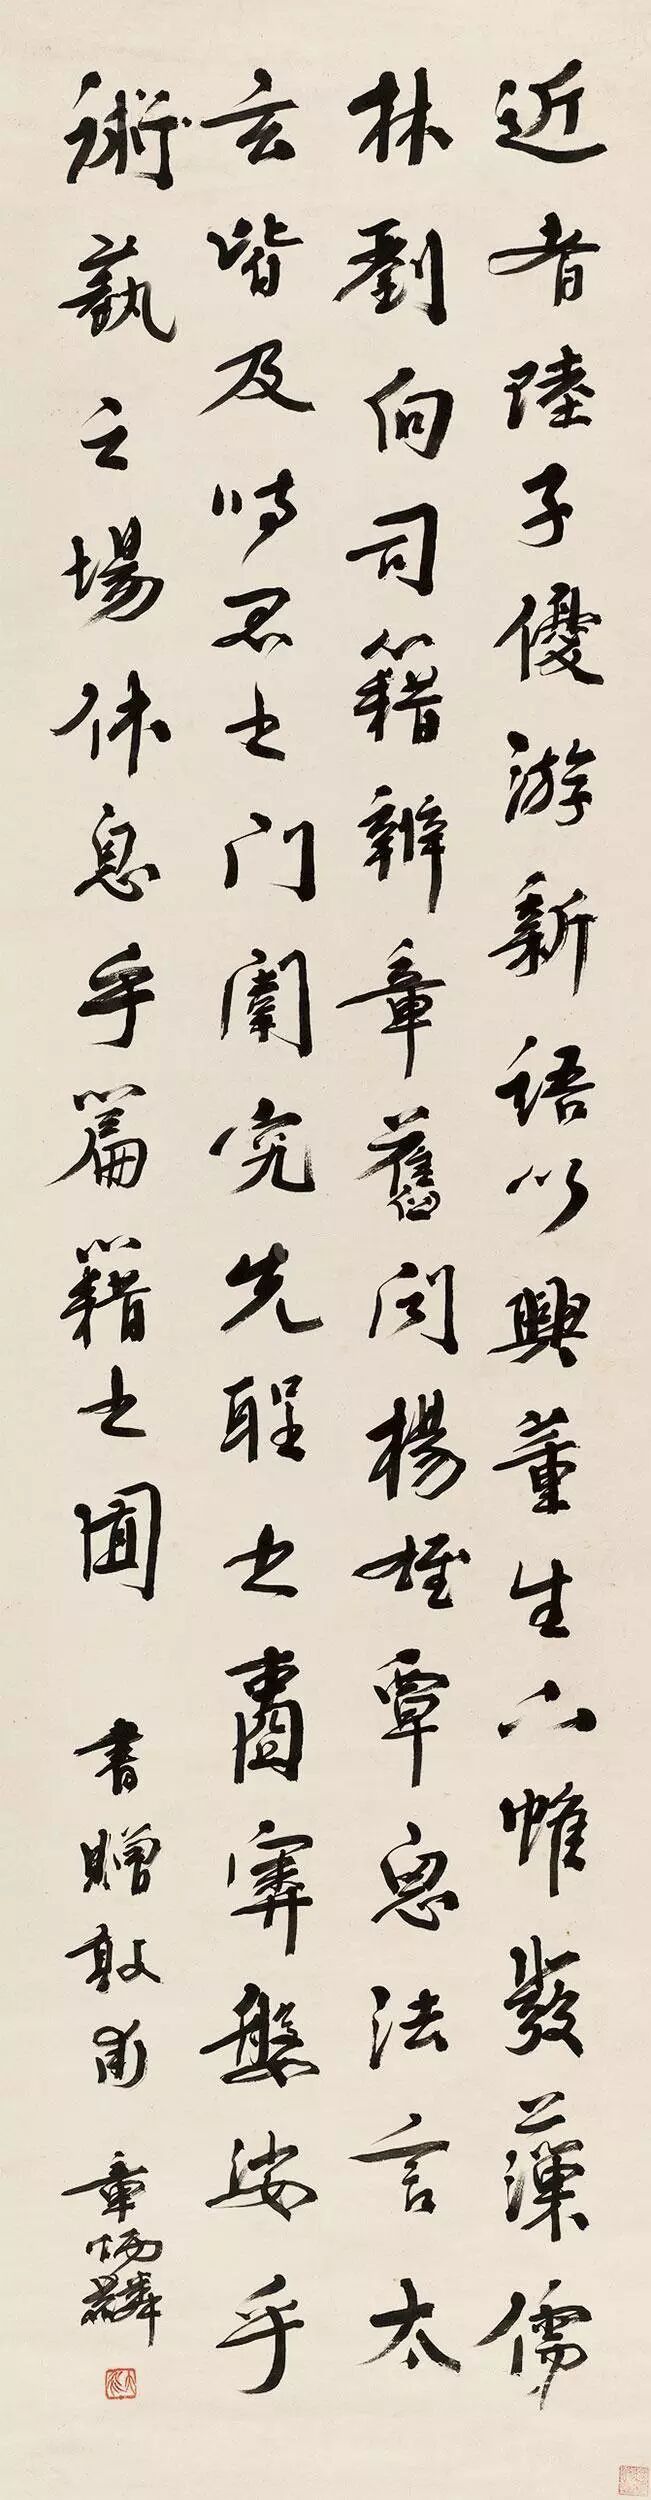 近者陸子優游新語以興董生下帷發藻儒
林劉向司籍辨章舊聞楊雄覃思法言太
玄皆及時君之門闈究先聖之壼奧媻娑乎
術蓺之場休息乎篇籍之囿 書贈甫 章炳麟